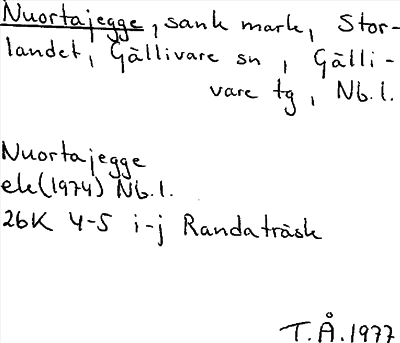 Nuortajegge, sank mark, Stor-
landet, Gällivare sn, Gälli-
vare tg, Nb.l.
Nuortajegge
ek(1974) Nb.l.
26K 4-5 i-j Randaträsk
T.Å.1977